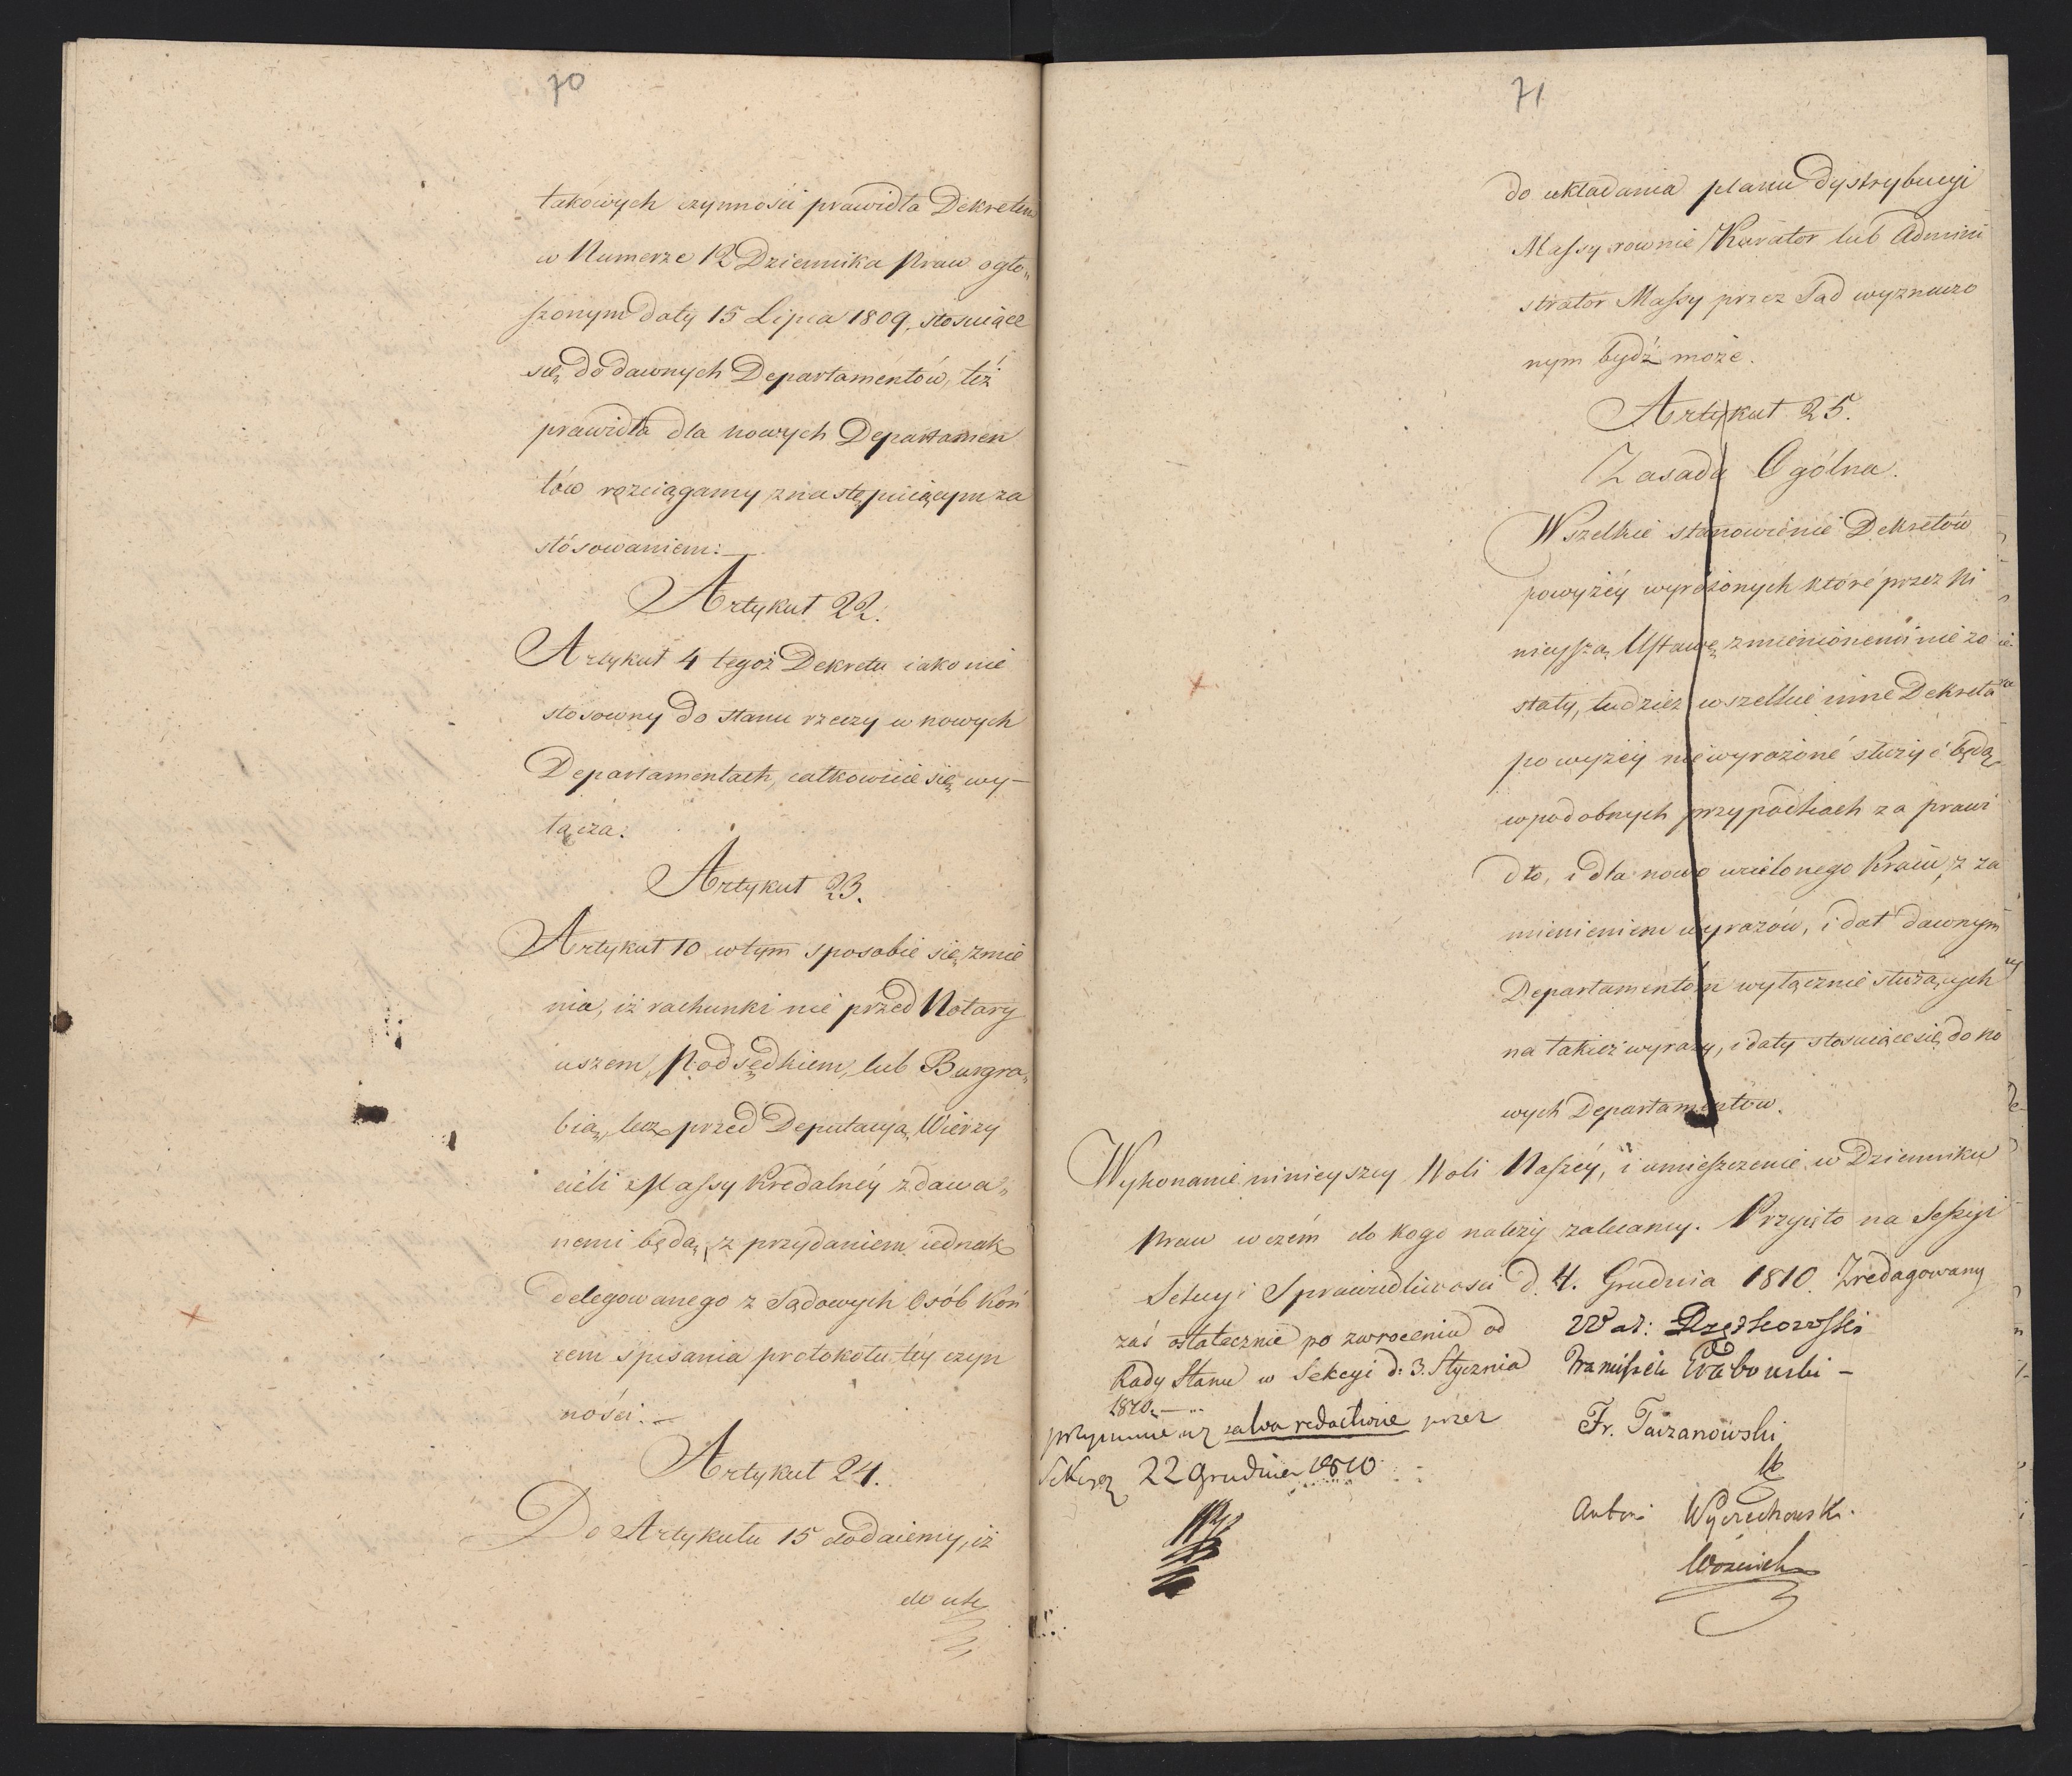 70
takowych czynności prawidła Dekretem
w Numerze 12 Dziennika Praw ogło„
szonym daty 15 Lipca 1809, stosuiące
się do dawnych Departamentów, też
prawidła dla nowych Departamen
tów rozciągamy z następuiącym za
stósowaniem:
Artykuł 22.
Artykuł 4 tegoż Dekretu iako nie
stosowny do stanu rzeczy w nowych
Departamentach, całkowicie się wy-
łącza.
Artykuł 23.
Artykuł 10 w tym sposobie się zmie
nia, iż rachunki nie przed Notary
uszem, Podsędkiem, lub Burgra„
bią, lecz przed Deputacyą Wierzy
cieli Massy Kredalnéy zdawa„
nemi będą, z przydaniem iednak
delegowanego z Sądowych Osób koń
cem spisania protokołu téy czyn
ności.
Artykuł 24.
Do Artykułu 15 dodaiemy, iż
do ukł
71
do układania planu dystrybucyi
Massy rownie Kurator lub Admini
strator Massy przez Sąd wyznaczo
nym bydź może.
Artykuł 25.
Zasada Ogólna.
Wszelkie stanowienie Dekretów
powyżéy wyrażonych które przez ni
nieyszą Ustawę zmienionemi nie zo
stały, tudzież wszelkie inne Dekreta
powyżéy nie wyrażone służyć będą
w podobnych przypadkach za prawi
dło, i dla nowo wcielonego Kraiu, z za
mienieniem wyrazów, i dat dawnym
Departamentom wyłącznie służących
na takież wyrazy, i daty stosuiące się do no
wych Departamentów.
Wykonanie ninieyszey Woli Naszéy, i umieszczenie w Dzienniku
Praw w czém do kogo należy zalecamy. Przyięto na Sessyi
Sekcyi Sprawiedliwości d. 4. Grudnia 1810. Zredagowany
zaś ostatecznie po zwroceniu od
Rady Stanu w Sekcyi d: 3. Stycznia
1810.
Franciszek Grabowski -
salva redactione przez
Sekcyą 22 Grudnia 1810
Fr. Tarzanowski
Antoni Wyczechowski.
Woźnicki